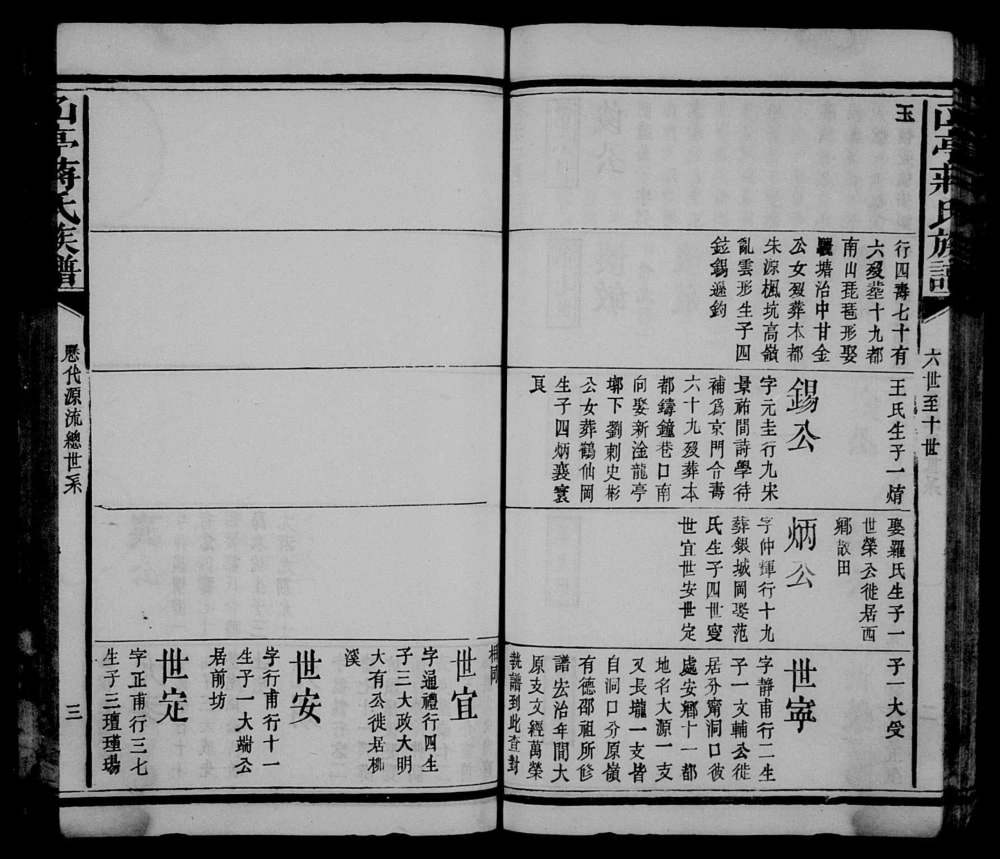 亭蔣氏族譜
六世至十世
玉
行四壽七十有
六歿葬十九都
南山琵琶形娶
驥塘治中甘金
公女歿葬本都
朱源楓坑高嶺
亂雲形生子四
鉉錫遜鈞
王氏生子一焴
錫公
字元圭行九宋
景祐間詩學待
補爲京門合壽
六十九歿葬本
都鑄鐘巷口南
向娶新淦龍亭
墎下劉刺史彬
公女葬鶴仙岡
生子四炳襄寰
㒫
娶羅氏生子一
世榮公徙居西
鄉敔田
炳公
字仲煇行十九
葬銀城岡娶范
氏生子四世寧
世宜世安世定
子一大受
世寧
字靜甫行二生
子一文輔公徙
居分甯洞口彼
處安鄉十一都
地名大源一支
又長壠一支皆
自洞口分原嶺
有德邵祖所修
譜宏治年間大
原支文經萬榮
執譜到此查對
相同
世宜
字通禮行四生
子三大政大明
大有公徙居柳
溪
世安
字行甫行十一
生子一大端公
居前坊
世定
字正甫行三七
生子三瓊瑾瑒
亭蔣氏族譜
歷代源流總世系
三